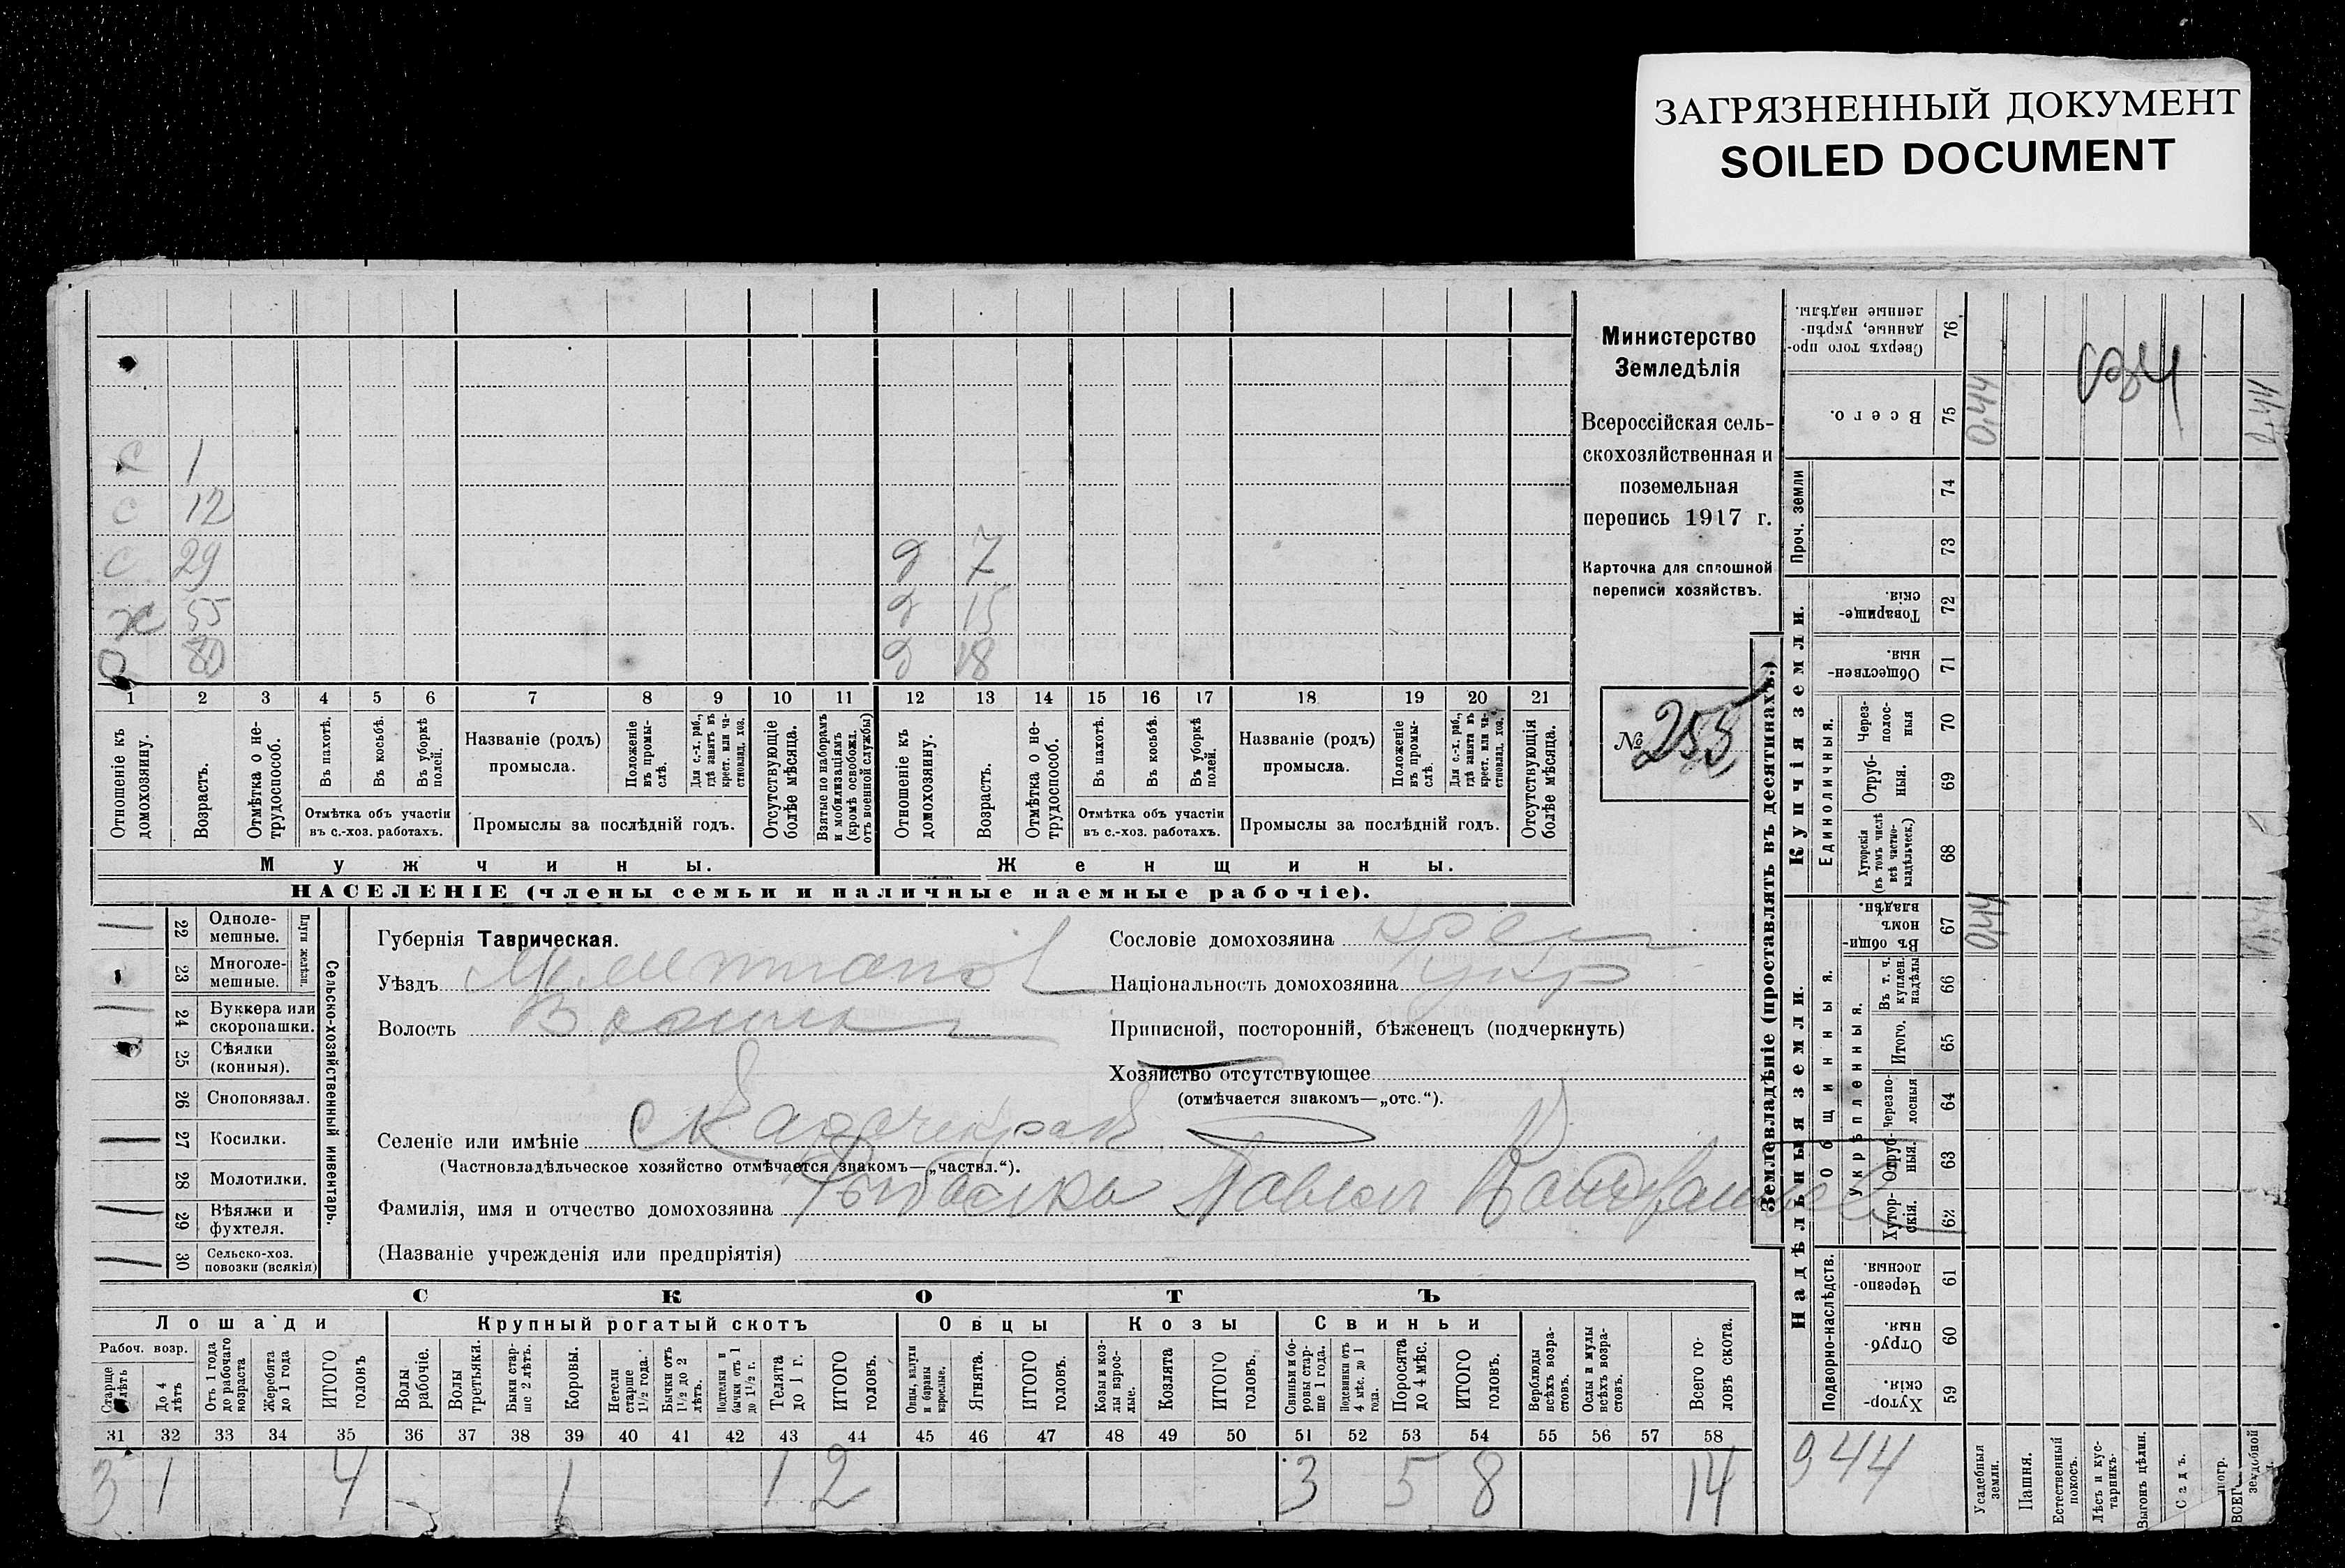 ЗАГРЯЗНЕННЫЙ ДОКУМЕНТ
SOILED DOCUMENT
Министерство
Земледѣлія
Всероссійская сель-
скохозяйственная и
поземельная
перепись 1917 г.
Карточка для сплошной
переписи хозяйствъ.
№ 255
с 1
с 12
с 29 д 7
ж 55 д 15
О 80 д 18
1 2 3 4 5 6 7 8 9 10 11 12 13 14 15 16 17 18 19 20 21
Отношеніе къ домохозяину.
Возрастъ.
Отмѣтка о не-трудоспособ.
Въ пахотѣ.
Въ косьбѣ.
Въ уборкѣ полей.
Отмѣтка объ участіи
въ с.-хоз. работахъ.
Названіе (родъ)
промысла.
Положеніе въ промы-слѣ.
Для с.-х. раб., гдѣ занятъ въ крест. или ча-стновлад. хоз.
Промыслы за послѣдній годъ.
Отсутствующіе болѣе мѣсяца.
Взятые по наборамъ и мобилизаціямъ (кромѣ освобожд. отъ военной службы)
Отношеніе къ домохозяину.
Возрастъ.
Отмѣтка о не-трудоспособ.
Въ пахотѣ.
Въ косьбѣ.
Въ уборкѣ полей.
Отмѣтка объ участіи
въ с.-хоз. работахъ.
Названіе (родъ)
промысла.
Положеніе въ промы-слѣ.
Для с.-х. раб., гдѣ занята въ крест. или ча-стновлад. хоз.
Промыслы за послѣдній годъ.
Отсутствующія болѣе мѣсяца.
Мужчины.
Женщины.
НАСЕЛЕНІЕ (члены семьи и наличные наемные рабочіе).
Сельско-хозяйственный инвентарь.
Плуги желѣзн.
22 Одноле-мешные.
23 Многоле-мешные.
24 Буккера или скоропашки.
25 Сѣялки (конныя).
26 Сноповязал.
27 Косилки.
28 Молотилки.
29 Вѣялки и фухтеля.
30 Сельско-хоз. повозки (всякія)
Губернія Таврическая.
Уѣздъ
Волость
Селеніе или имѣніе
(Частновладѣльческое хозяйство отмѣчается знакомъ—„частвл.“).
Фамилія, имя и отчество домохозяина Рыбалка Павел
(Названіе учрежденія или предпріятія)
Сословіе домохозяина крест
Національность домохозяина укр
Приписной, посторонній, бѣженецъ (подчеркнуть)
Хозяйство отсутствующее
(отмѣчается знакомъ—„отс.“).
СКОТЪ
Лошади
Рабоч. возр.
До 4 лѣтъ
Отъ 1 года до рабочаго возраста
Жеребята до 1 года
ИТОГО головъ
Крупный рогатый скотъ
Волы рабочіе.
Волы третьяки.
Быки стар-ше 2 лѣтъ.
Коровы.
Нетели старше 1½ года.
Бычки отъ 1½ до 2 лѣтъ.
Подтелки и бычки отъ 1 до 1½ г.
Телята до 1 г.
ИТОГО головъ.
Овцы
Овцы, валухи и бараны взрослые.
Ягнята.
ИТОГО головъ.
Козы
Козы и коз-лы взрос-лые.
Козлята
ИТОГО головъ.
Свиньи
Свиньи и бо-ровы стар-ше 1 года.
Подсвинки отъ 4 мѣс. до 1 года.
Поросята до 4 мѣс.
ИТОГО головъ.
Верблюды всѣхъ возра-стовъ.
Ослы и мулы всѣхъ возра-стовъ.
Всего го-ловъ скота.
31 32 33 34 35 36 37 38 39 40 41 42 43 44 45 46 47 48 49 50 51 52 53 54 55 56 57 58
3 1 4 1 1 2 3 5 8 14
Землевладѣніе (проставлять въ десятинахъ.)
Купчія земли.
Надѣльныя земли.
Сверхъ того про-данные, укрѣп-ленные надѣлы. 76
Всего. 75 0,44
Проч. земли 74 73
Товарище-скія. 72
Обществен-ныя. 71
Единоличныя.
Через-полос-ныя 70
Отруб-ныя. 69
Хуторскія (въ томъ числѣ всѣ частно-владѣльческ.) 68
Общинныя.
Въ общи-номъ владѣн. 67 0,44
Укрѣпленныя.
Въ т. ч. куплен. надѣлы 66
Итого. 65
Черезпо-лосныя 64
Отруб-ныя. 63
Хутор-скія. 62
Подворно-наслѣдств.
Черезпо-лосныя 61
Отруб-ныя. 60
Хутор-скія. 59
944
Усадебныя земли.
Пашня.
Естественный покосъ.
Лѣсъ и кус-тарникъ.
Выгонъ цѣлин.
Садъ.